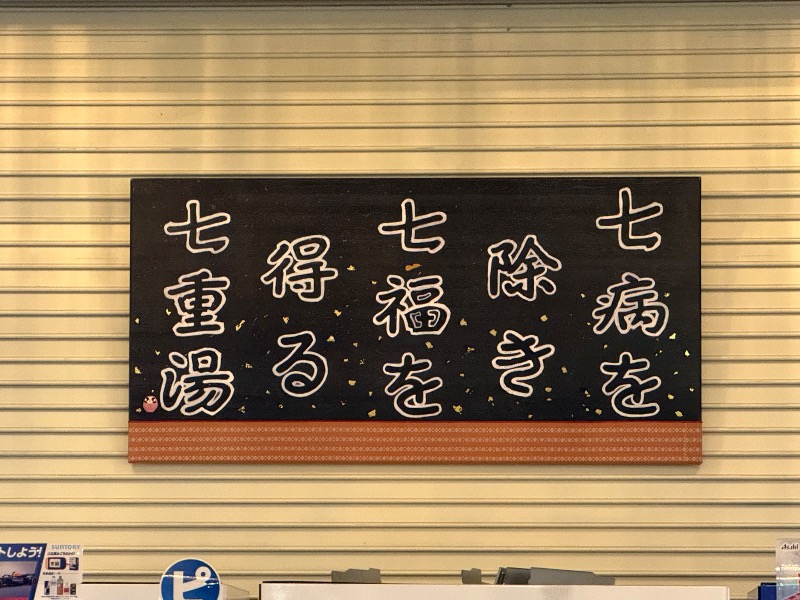 七病を
除き
七福を
得る
七重湯
トしよう!
SUNTORY
ピ
Asahi